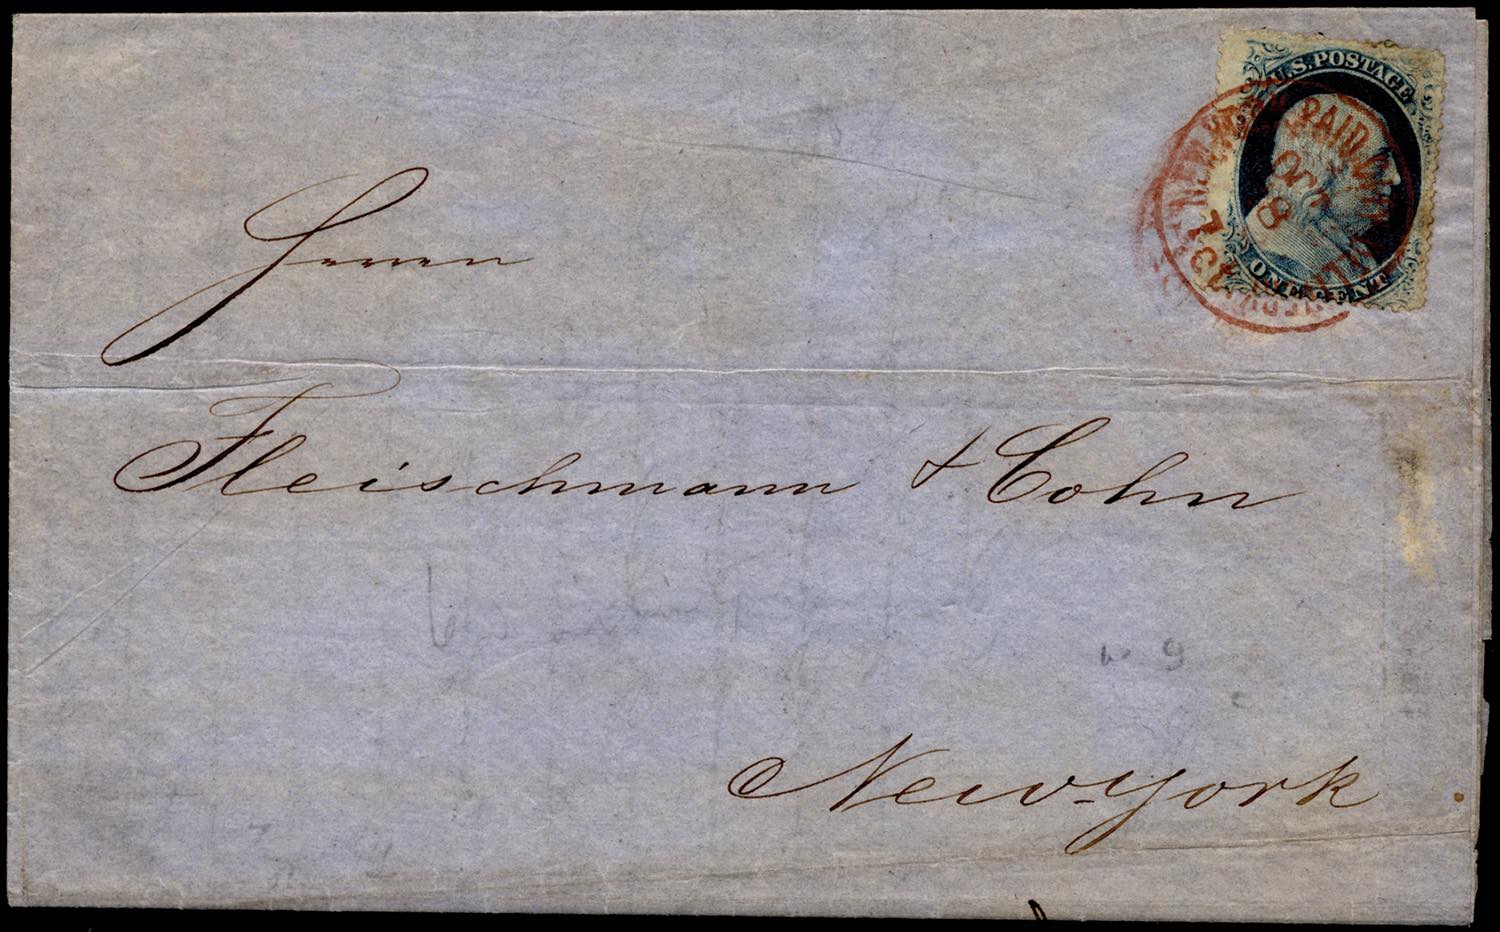 U.S. POSTAGE
ONE CENT
PAID
OCT
8
Herren
Fleischmann & Cohn
9
New-York